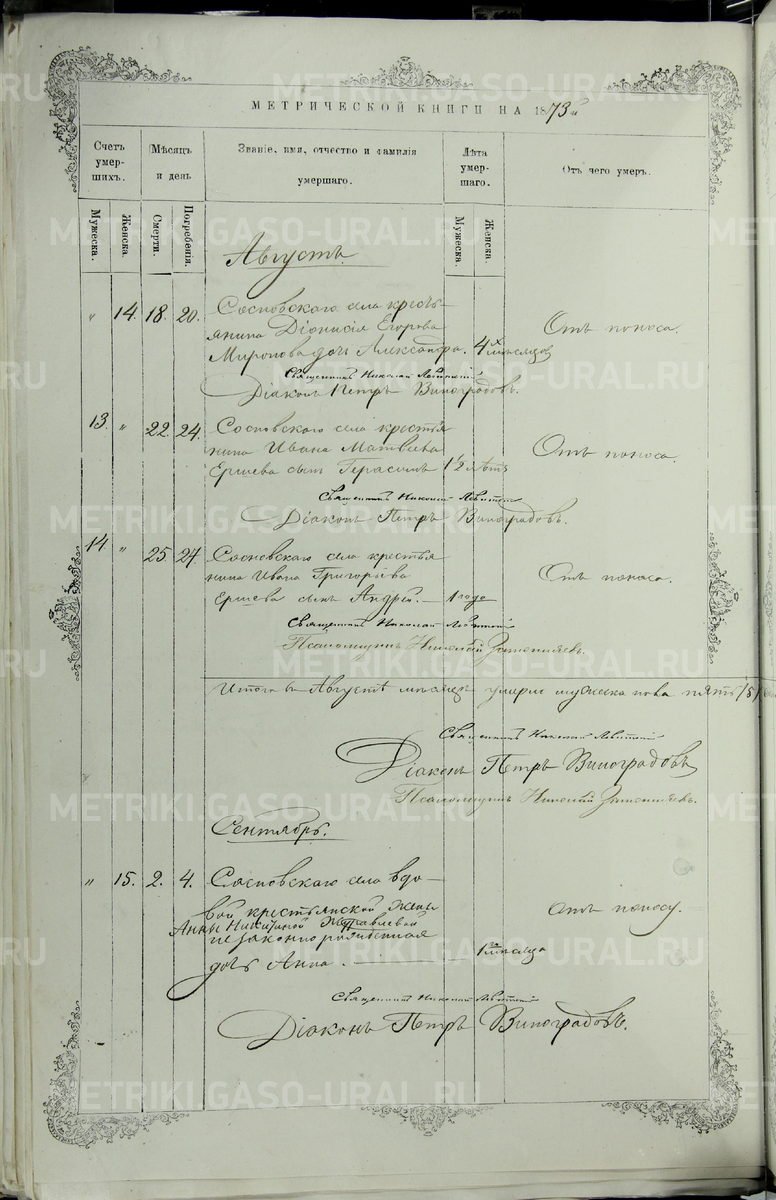 МЕТРИЧЕСКОЙ КНИГИ НА 1873й
Счетъ умер- шихъ.
Мѣсяцъ и день
Званіе, имя, отчество и фамилія умершаго.
Лѣта умер- шаго.
Отъ чего умеръ.
Мужеска.
Женска.
Смерти.
Погребенія.
Мужеска.
Женска.
Августъ.
" 14. 18. 20. Сосновскаго села кресть-
янина Діонисія Егорова
Миронова дочь Александра. 4х мѣсяцовъ Отъ поноса.
Священникъ Николай Левитскій
Діаконъ Петръ Виноградовъ.
13. " 22. 24. Сосновскаго села крестья
нина Ивана Матвѣева
Ершева сынъ Герасимъ 1 1/2 лѣтъ Отъ поноса.
Священникъ Николай Левитскій
Діаконъ Петръ Виноградовъ.
14. " 25. 27. Сосновскаго села крестья
нина Ивана Григорьева
Ершева сынъ Андрей. 1 года Отъ поноса.
Священникъ Николай Левитскій
Псаломщикъ Николай
Итого въ Августѣ мѣсяцѣ умерли мужеска пола пять /5/
Священникъ Николай Левитскій
Діаконъ Петръ Виноградовъ
Псаломщикъ Николай
Сентябрь.
" 15. 2. 4. Сосновскаго села вдо-
вой крестьянской жены
Анны Никитиной Журавлевой
незаконнорожденная
дочь Анна. 1 мѣсяца Отъ поносу.
Священникъ Николай Левитскій
Діаконъ Петръ Виноградовъ.
METRIKI.GASO-URAL.RU